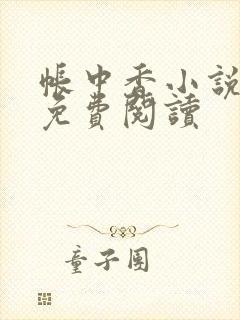 帳中香小說
免費閱讀
童子團